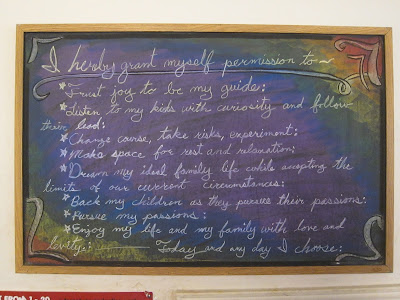 I hereby grant myself permission to ~
*Trust joy to be my guide;
*Listen to my kids with curiosity and follow
their lead;
*Change course, take risks, experiment;
*Make space for rest and relaxation;
*Dream my ideal family life while accepting the
limits of our current circumstances;
*Back my children as they pursue their passions;
*Pursue my passions;
*Enjoy my life and my family with love and
levity; Today and any day I choose;
1 - 20